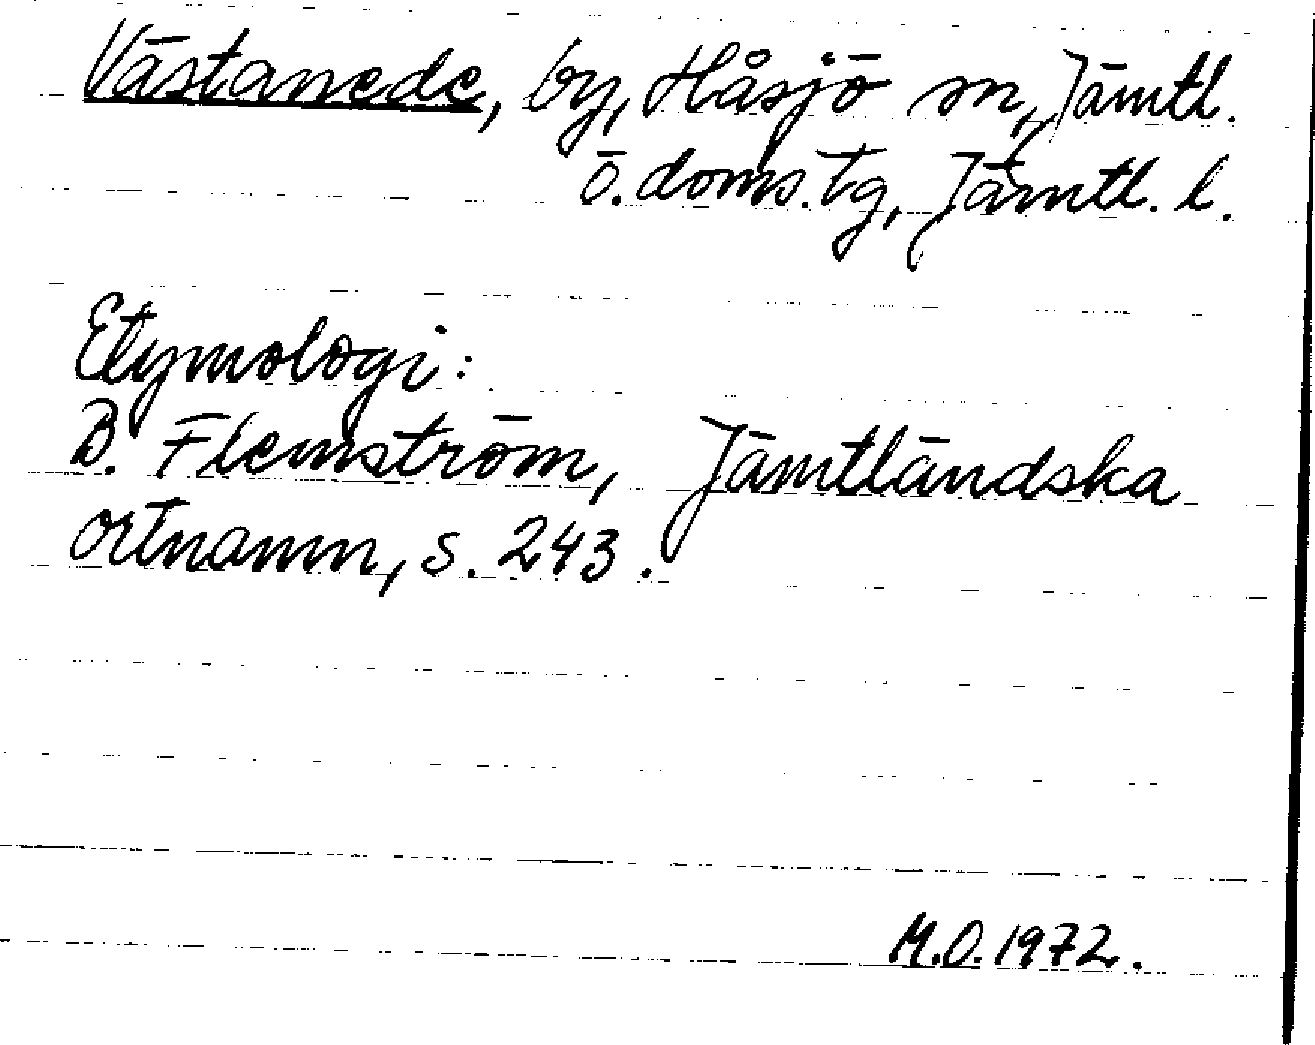 Västanede, by, Håsjö sn, Jämtl.
ö. doms. tg, Jämtl. l.
Etymologi:
B. Flemström, Jämtländska
ortnamn, s. 243.
M.O. 1972.